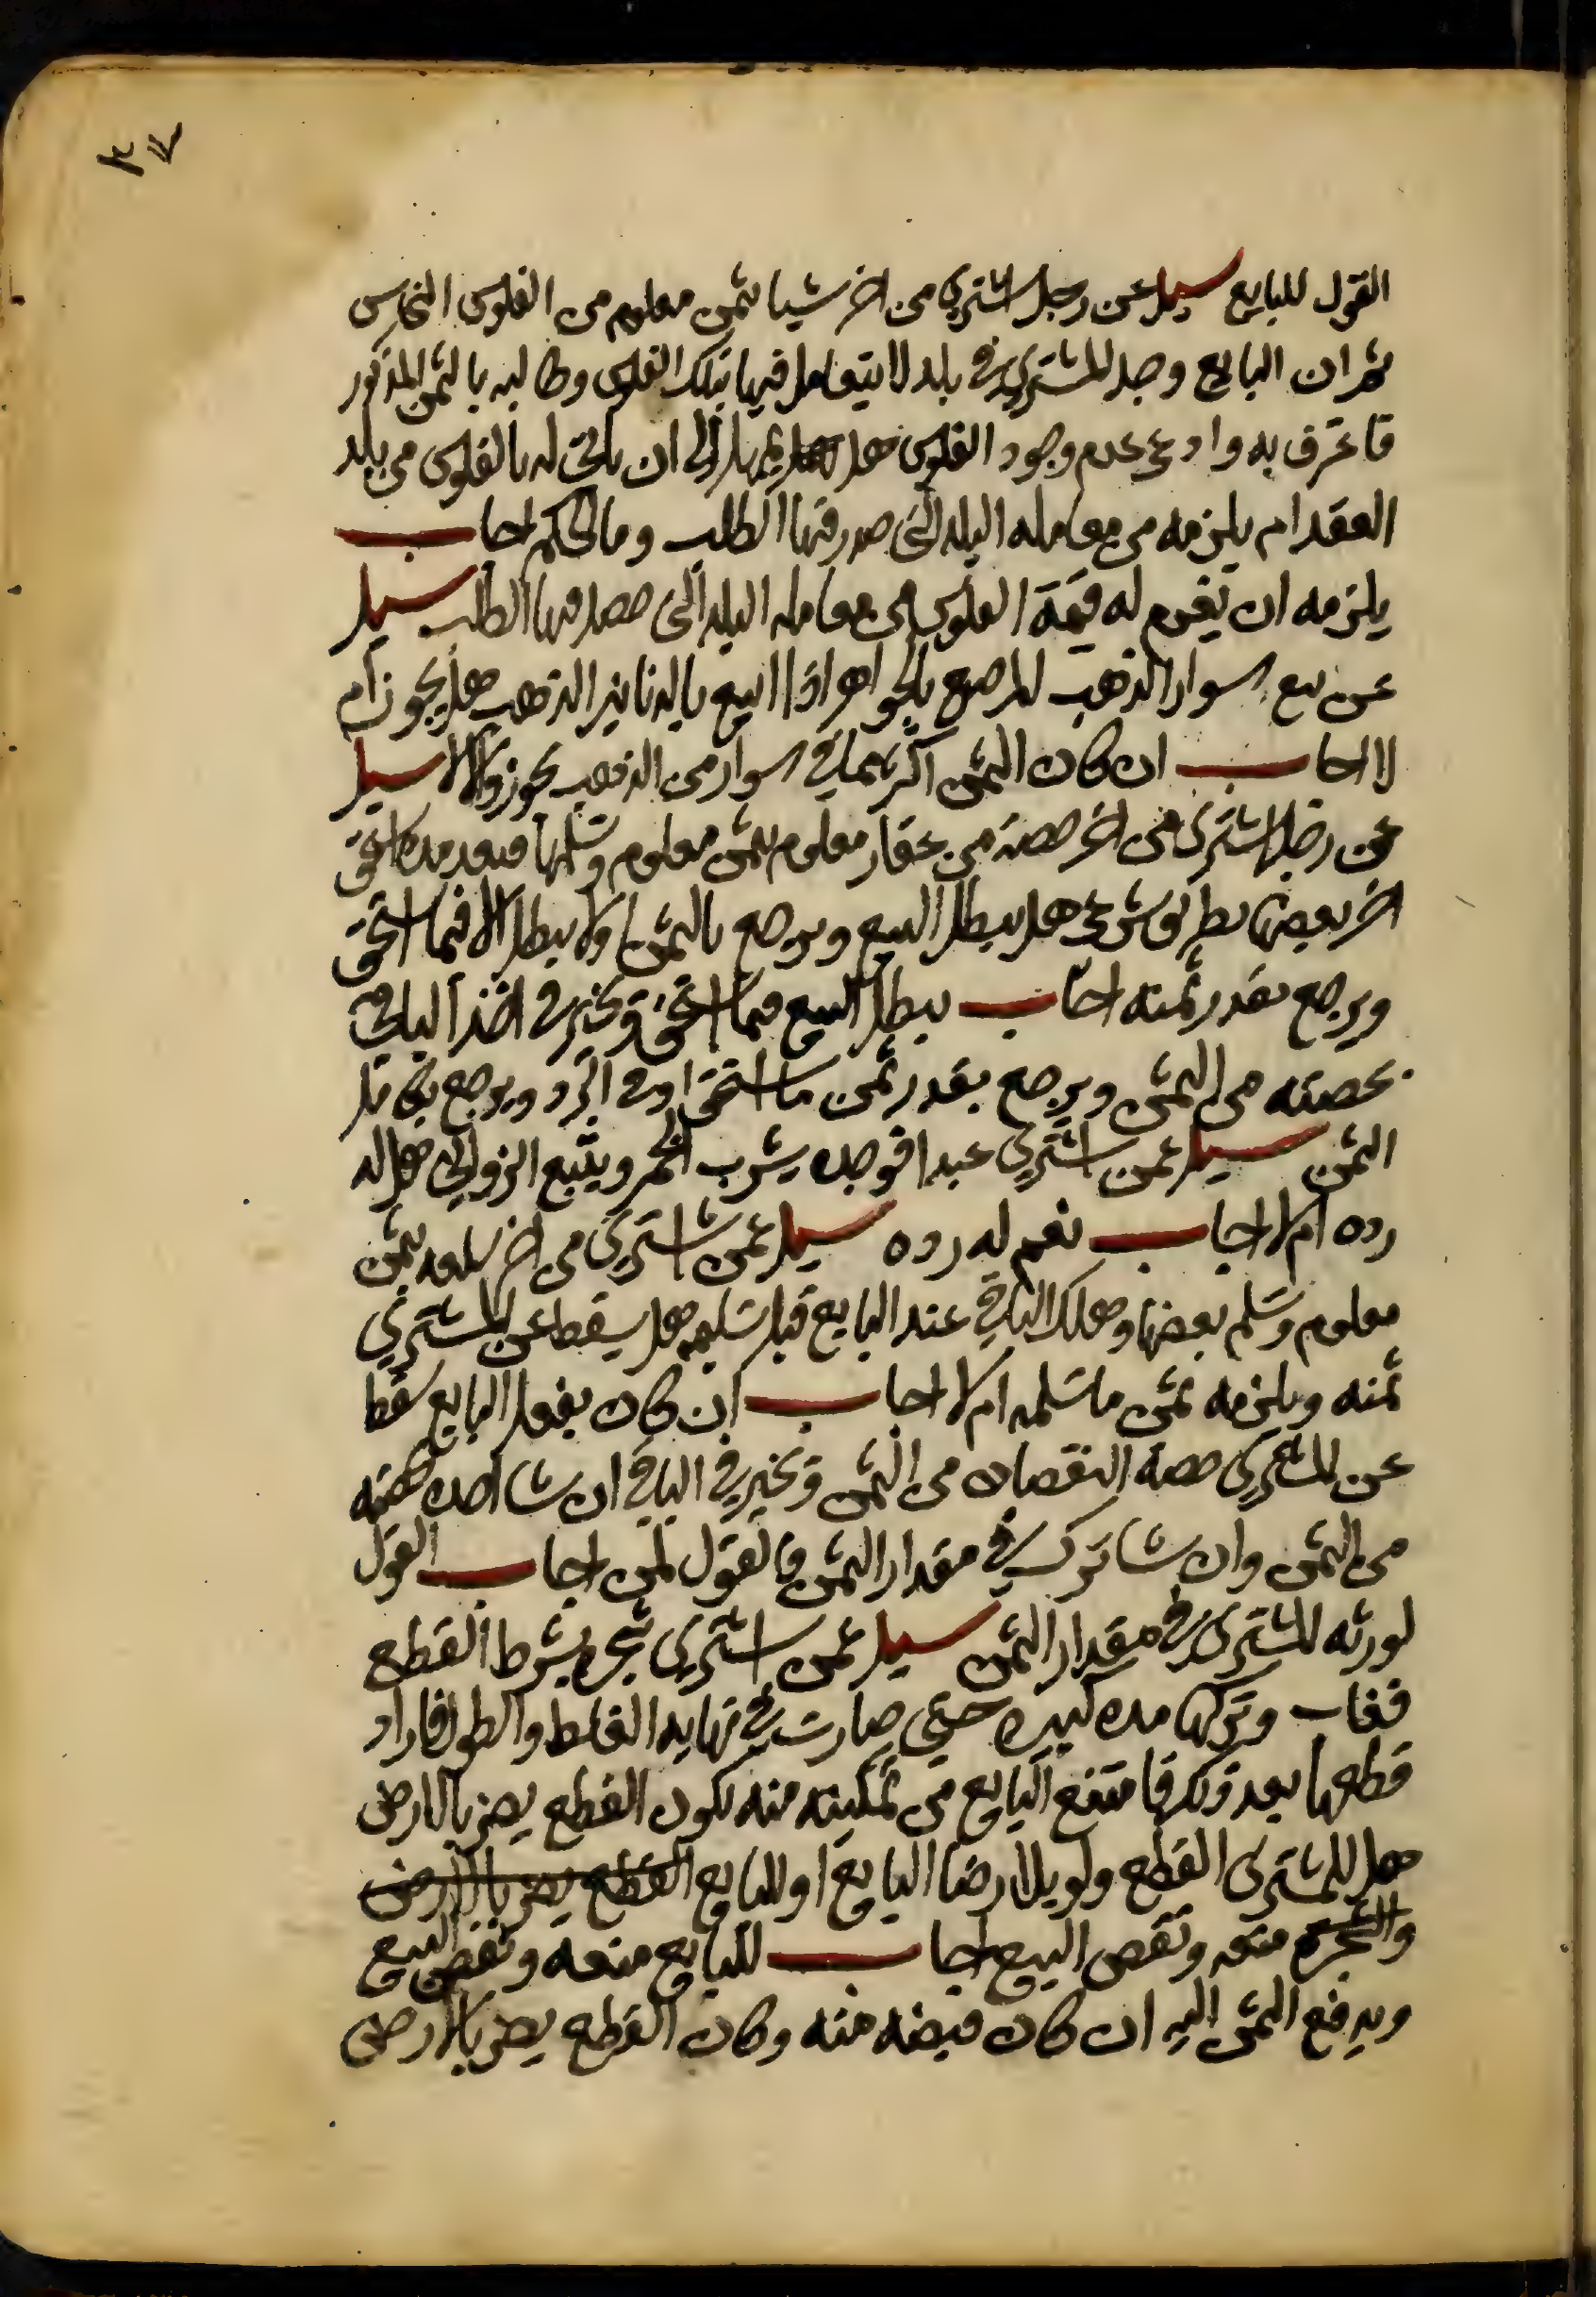 ٣٧
القول للبايع سيل عن رجل اشتري من اخر شيا بثمن معلوم من الفلوس النحاس
ثم ان البايع وجد المشتري في بلد لا يتعامل فيها بتلك الفلوس وطالبه بالثمن المذكور
فاعترف به وادعى عدم وجود الفلوس هل يمهل الى ان ياتي له بالفلوس من بلد
العقد ام يلزمه من معامله البلد التي صدر فيها الطلب وما الحكم اجاب
يلزمه ان يغرم له قيمة الفلوس من معامله البلد التي حصل فيها الطلب سيل
عن بيع اسوار الذهب المرصع بالجواهر اذا ابيع بالدنانير الذهب هل يجوز ام
لا اجاب ان كان الثمن اكثر مما في اسوار من الذهب يجوز والا لا سيل
عن رجل اشترى من اخر حصة من عقار معلوم بثمن معلوم وتسلمها فبعد مده استحق
اخر بعضها بطريق شرعي هل يبطل البيع ويرجع بالثمن او لا يبطل الا فيما استحق
ويرجع بقدر ثمنه اجاب يبطل البيع فيما استحق ويخير في اخذ الباقي
بحصته من الثمن ويرجع بقدر ثمن ما استحق او في الرد ويرجع بكامل
الثمن سيل عمن اشتري عبدا فوجده يشرب الخمر ويتبع الزواني هل له
رده ام لا اجاب نعم له رده سيل عمن اشتري من اخر سلعه بثمن
معلوم وتسلم بعضها وهلك الباقي عند البايع قبل تسليمه هل يسقط عن المشتري
ثمنه ويلزمه ثمن ما تسلمه ام لا اجاب ان كان بفعل البايع سقط
عن المشتري حصه النقصان من الثمن ويخير في الباقي ان شا اخذه بحصته
من الثمن وان شا ترك في مقدار الثمن فالقول لمن اجاب القول
لورثه المشتري في مقدار الثمن سيل عمن اشتري شجره بشرط القطع
فغاب وتركها مده كبيره حتى صارت في نهايه الغلظ والطول فاراد
قطعها بعد ذلك فامتنع البايع من تمكينه منه لكون القطع يضر بالارض
هل للمشتري القطع ولو بلا رضا البايع او للبايع القطع يضر بالارض
منعه ونقض البيع اجاب للبايع منعه ونقض البيع
ويدفع الثمن اليه ان كان قبضه منه وكان القطع يضر بالارض